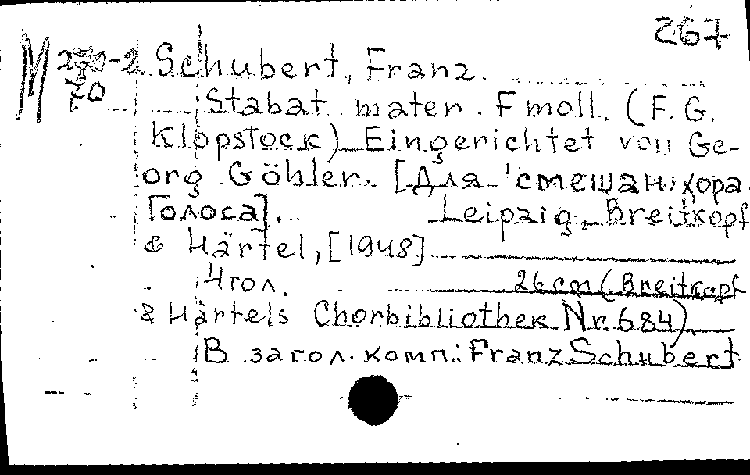 267
M Schubert, Franz.
70 Stabat mater. F moll. (F. G.
Klopstock) Eingerichtet von Ge-
org Göhler. [Для смешан. хора.
Голоса]. Leipzig, Breitkopf
& Härtel, [1948]
4 гол. 26 cm (Breitkopf
& Härtels Chorbibliothek Nr. 684)
В загол. комп.: Franz Schubert